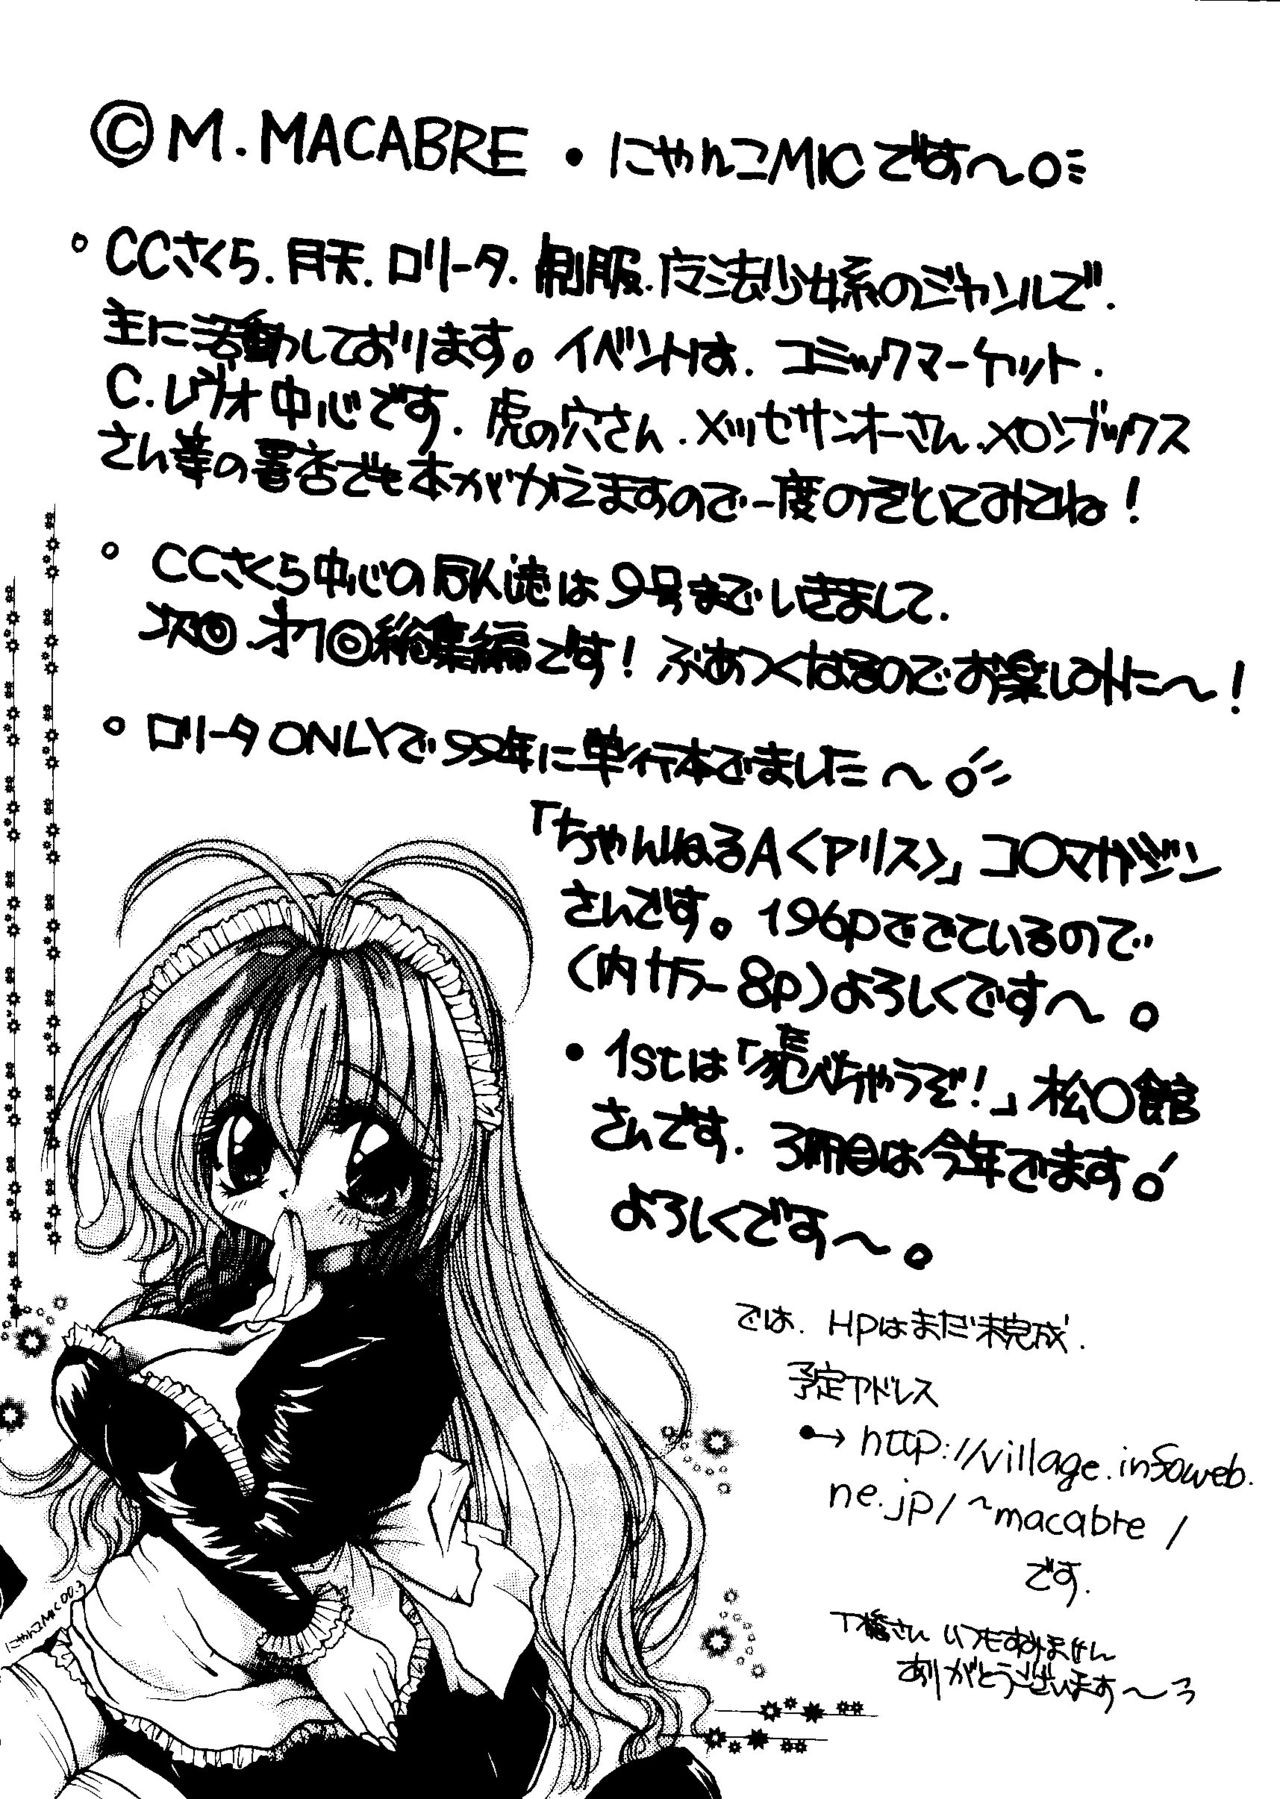 © M. MACABRE ・ にゃんこMICです〜
CCさくら. 月天. ロリータ. 制服. 魔法少女系のジャンルで.
主に活動しております。イベントは. コミックマーケット.
C.レヴォ中心です. 虎の穴さん. メッセサンオーさん. メロンブックス
さん等の書店でも本がかえますので一度のぞいてみてね!
CCさくら中心の同人誌は9号までいきまして.
次回. オフ◎総集編です! ぶあつくなるのでお楽しみに〜!
ロリータONLYで99年に単行本でました〜
「ちゃんねるA<アリス>」コ〇マガジン
さんです。196pででているので
(内カラー8p)よろしくです〜。
1stは「食べちゃうぞ!」松〇館
さんです. 3冊目は今年でます
よろしくです〜。
では. HPはまだ未完成.
予定アドレス
→ http://village.infoweb.
ne.jp/~macabre/
です.
T橋さん いつもすみません
ありがとうございます〜
にゃんこMIC 00.3